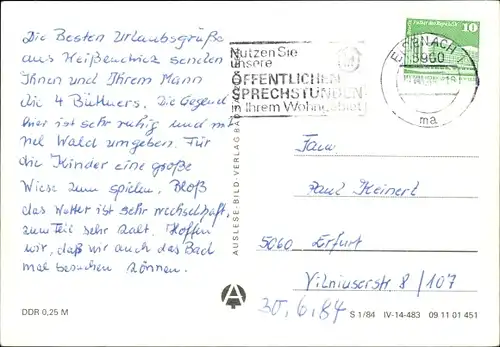 Die Besten Urlaubsgrüße
aus Heißen senden
Ihnen und Ihrem Mann
die 4 Büttners. Die Gegend
hier ist sehr ruhig und mit
viel Wald umgeben. Für
die Kinder eine große
Wiese zum spielen. Bloß
das Wetter ist sehr wechselhaft,
zum Teil sehr kalt. Hoffen
wir, daß wir auch das Bad
mal besuchen können.
DDR 0,25 M
AUSLESE-BILD-VERLAG BAD
Nutzen Sie
unsere
ÖFFENTLICHEN
SPRECHSTUNDEN
in Ihrem Wohngebiet
EISENACH
5900
ma
10
Fam.
Paul Keinert
5060 Erfurt
Vilniuserstr. 8/107
30.6.84
S 1/84 IV-14-483 09 11 01 451